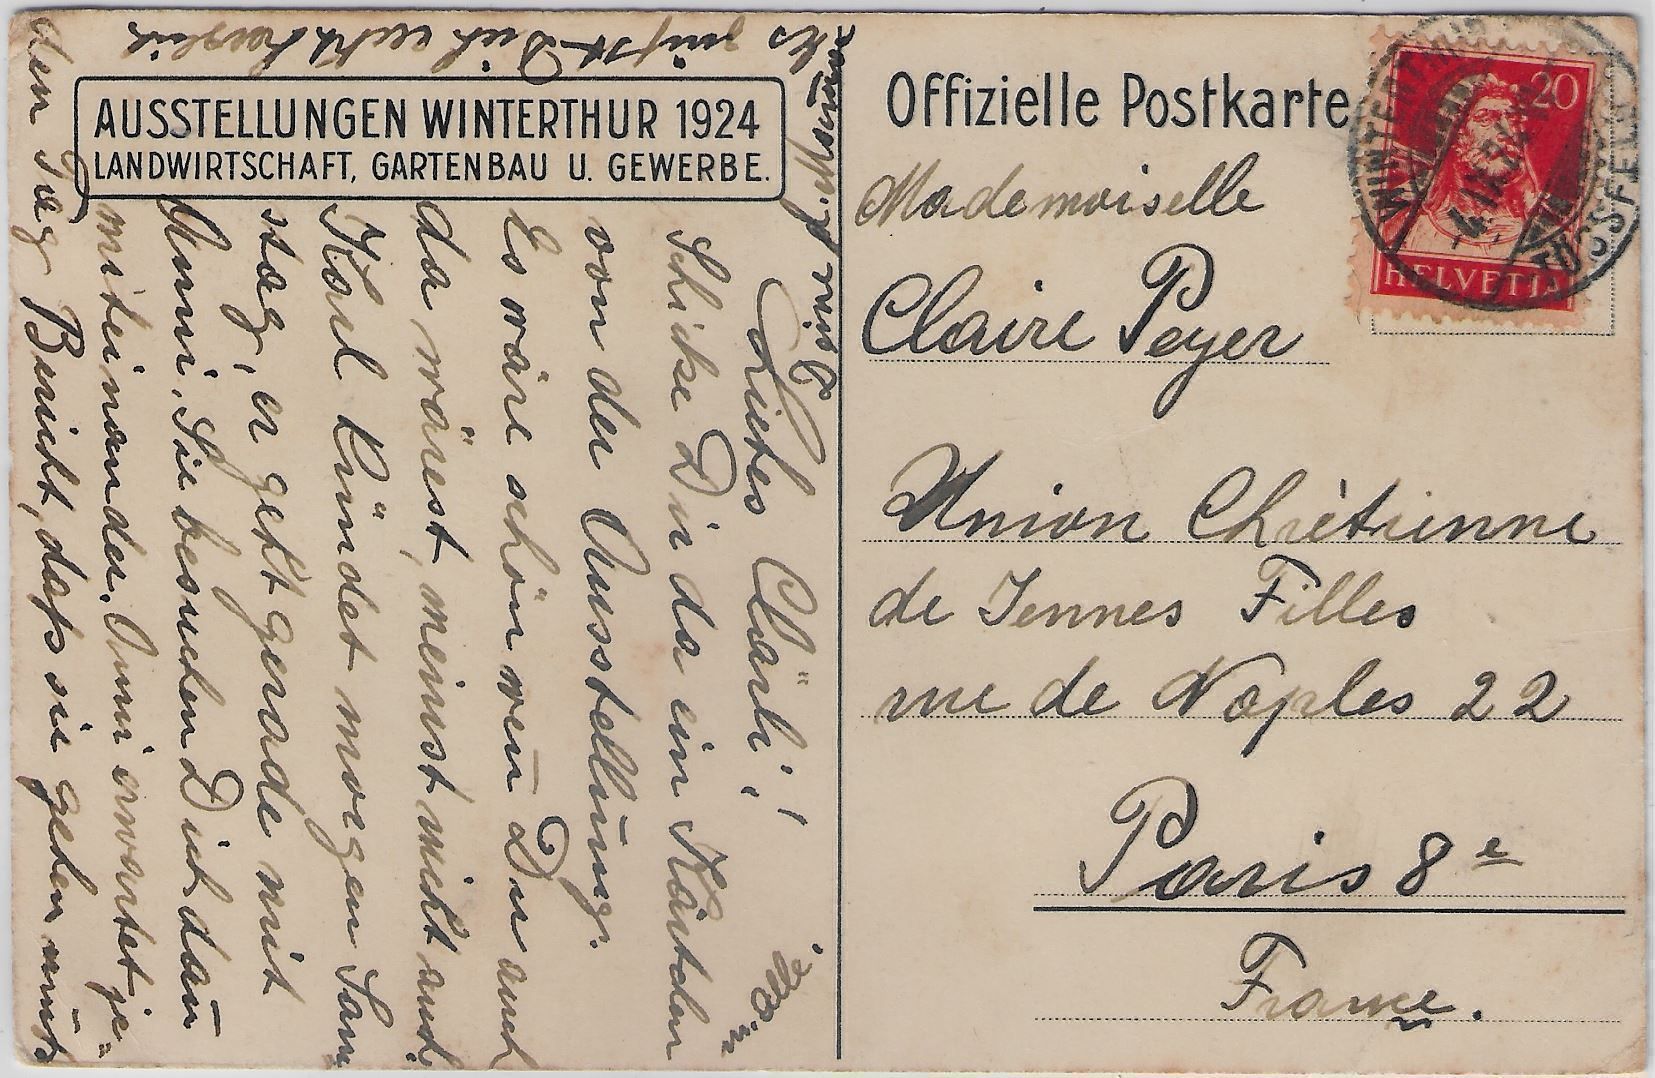 AUSSTELLUNGEN WINTERTHUR 1924
LANDWIRTSCHAFT, GARTENBAU U. GEWERBE.
Liebes Clärli!
Schicke Dir da ein Kärtchen
von der Ausstellung.
Es wäre schön wen̄ Du auch
da wärest, meinst nicht auch.
Karl kündet morgen Sam
stag, er geht gerade mit
Anni. Sie besuchen Dich dan̄
miteinander. Anni erwartet je-
den Tag Bericht, dass sie gehen
Es grüsst Dich recht herzlich
Offizielle Postkarte
Mademoiselle
Claire Peyer
Union Chrétienne
de Jennes Filles
rue de Naples 22
Paris 8e
France.
20
HELVETIA
WINTERTHUR
TÖSSFELD